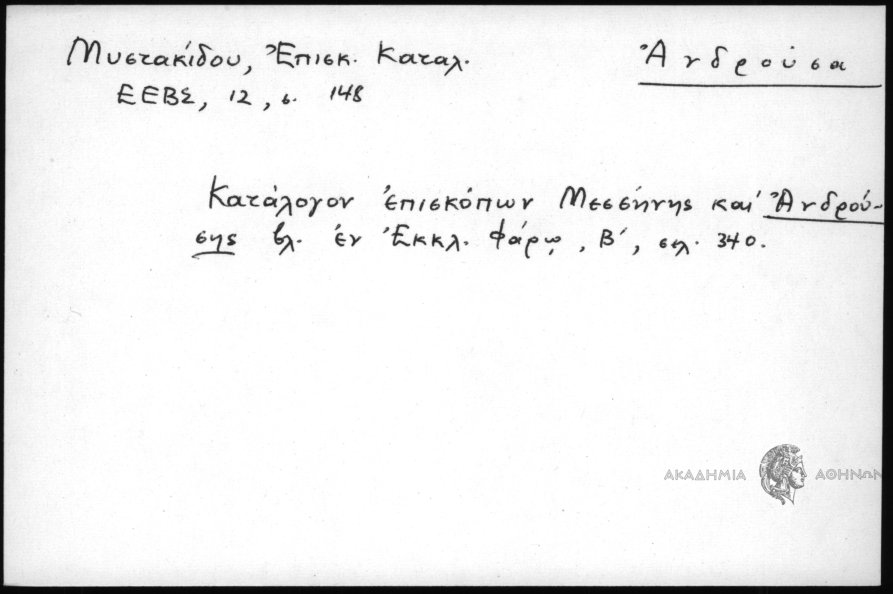 Μυστακίδου, Ἐπισκ. Καταλ.
Ἀνδρούσα
ΕΕΒΣ, 12, σ. 148
Κατάλογον ἐπισκόπων Μεσσήνης καί Ἀνδρού-
σης βλ. ἐν Ἐκκλ. Φάρῳ, Β΄, σελ. 340.
ΑΚΑΔΗΜΙΑ ΑΘΗΝΩΝ